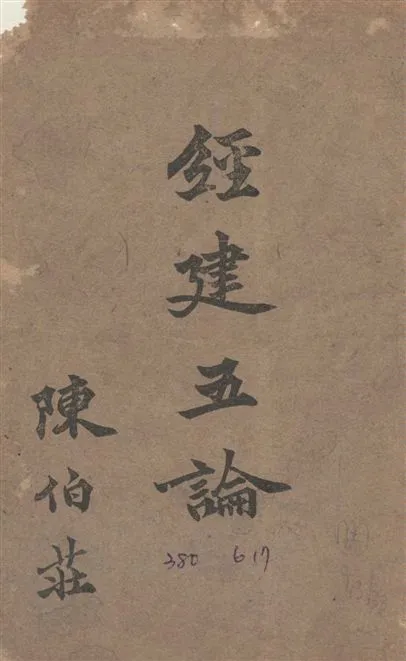 經建五論
陳伯莊
380 617